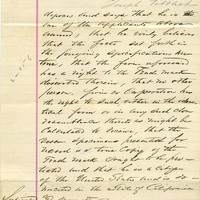 Joseph
deposes and says that he is the
one of the applicants above
named; that he verily believes
that the facts set forth in
the foregoing specification are
true; that the firm aforesaid
has a right to the Trade mark
described therein; that no other
person, firm or Corporation has
the right to such use either in the iden-
tical form or in any such close
resemblance thereto as might be
Calculated to deceive; that the
Specimens presented for
record is a true Copy of the
Trade mark sought to be pro-
tected and that he is a Citizen
of the United States and is do-
miciled in the State of California